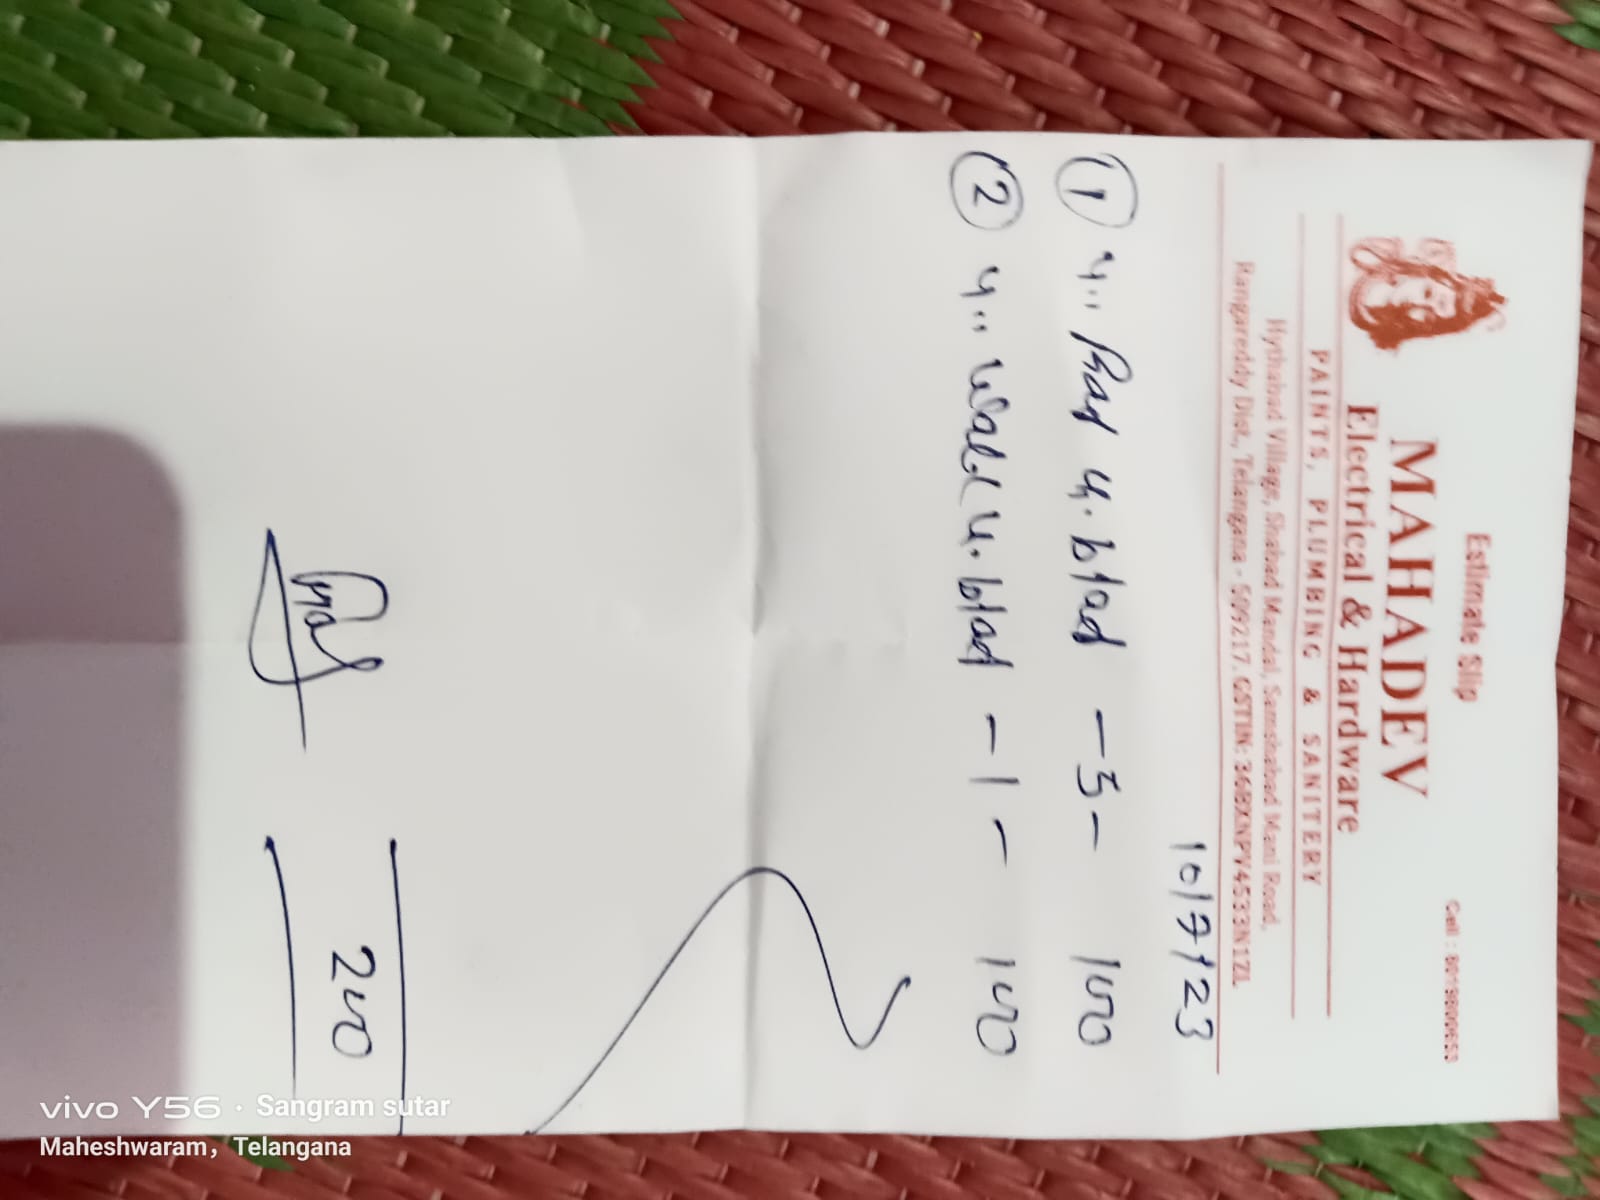 Estimate Slip
MAHADEV
Electrical & Hardware
PAINTS, PLUMBING & SANITERY
Hythabad Village, Shabad Mandal, Samshabad Mani Road,
Rangareddy Dist., Telangana - 509217. GSTIN: 36BXNPV4533N1ZL
10/7/23
① 4" 4. blad - 5 - 100
② 4" 4. blad - 1 - 100
200
vivo Y56 · Sangram sutar
Maheshwaram, Telangana